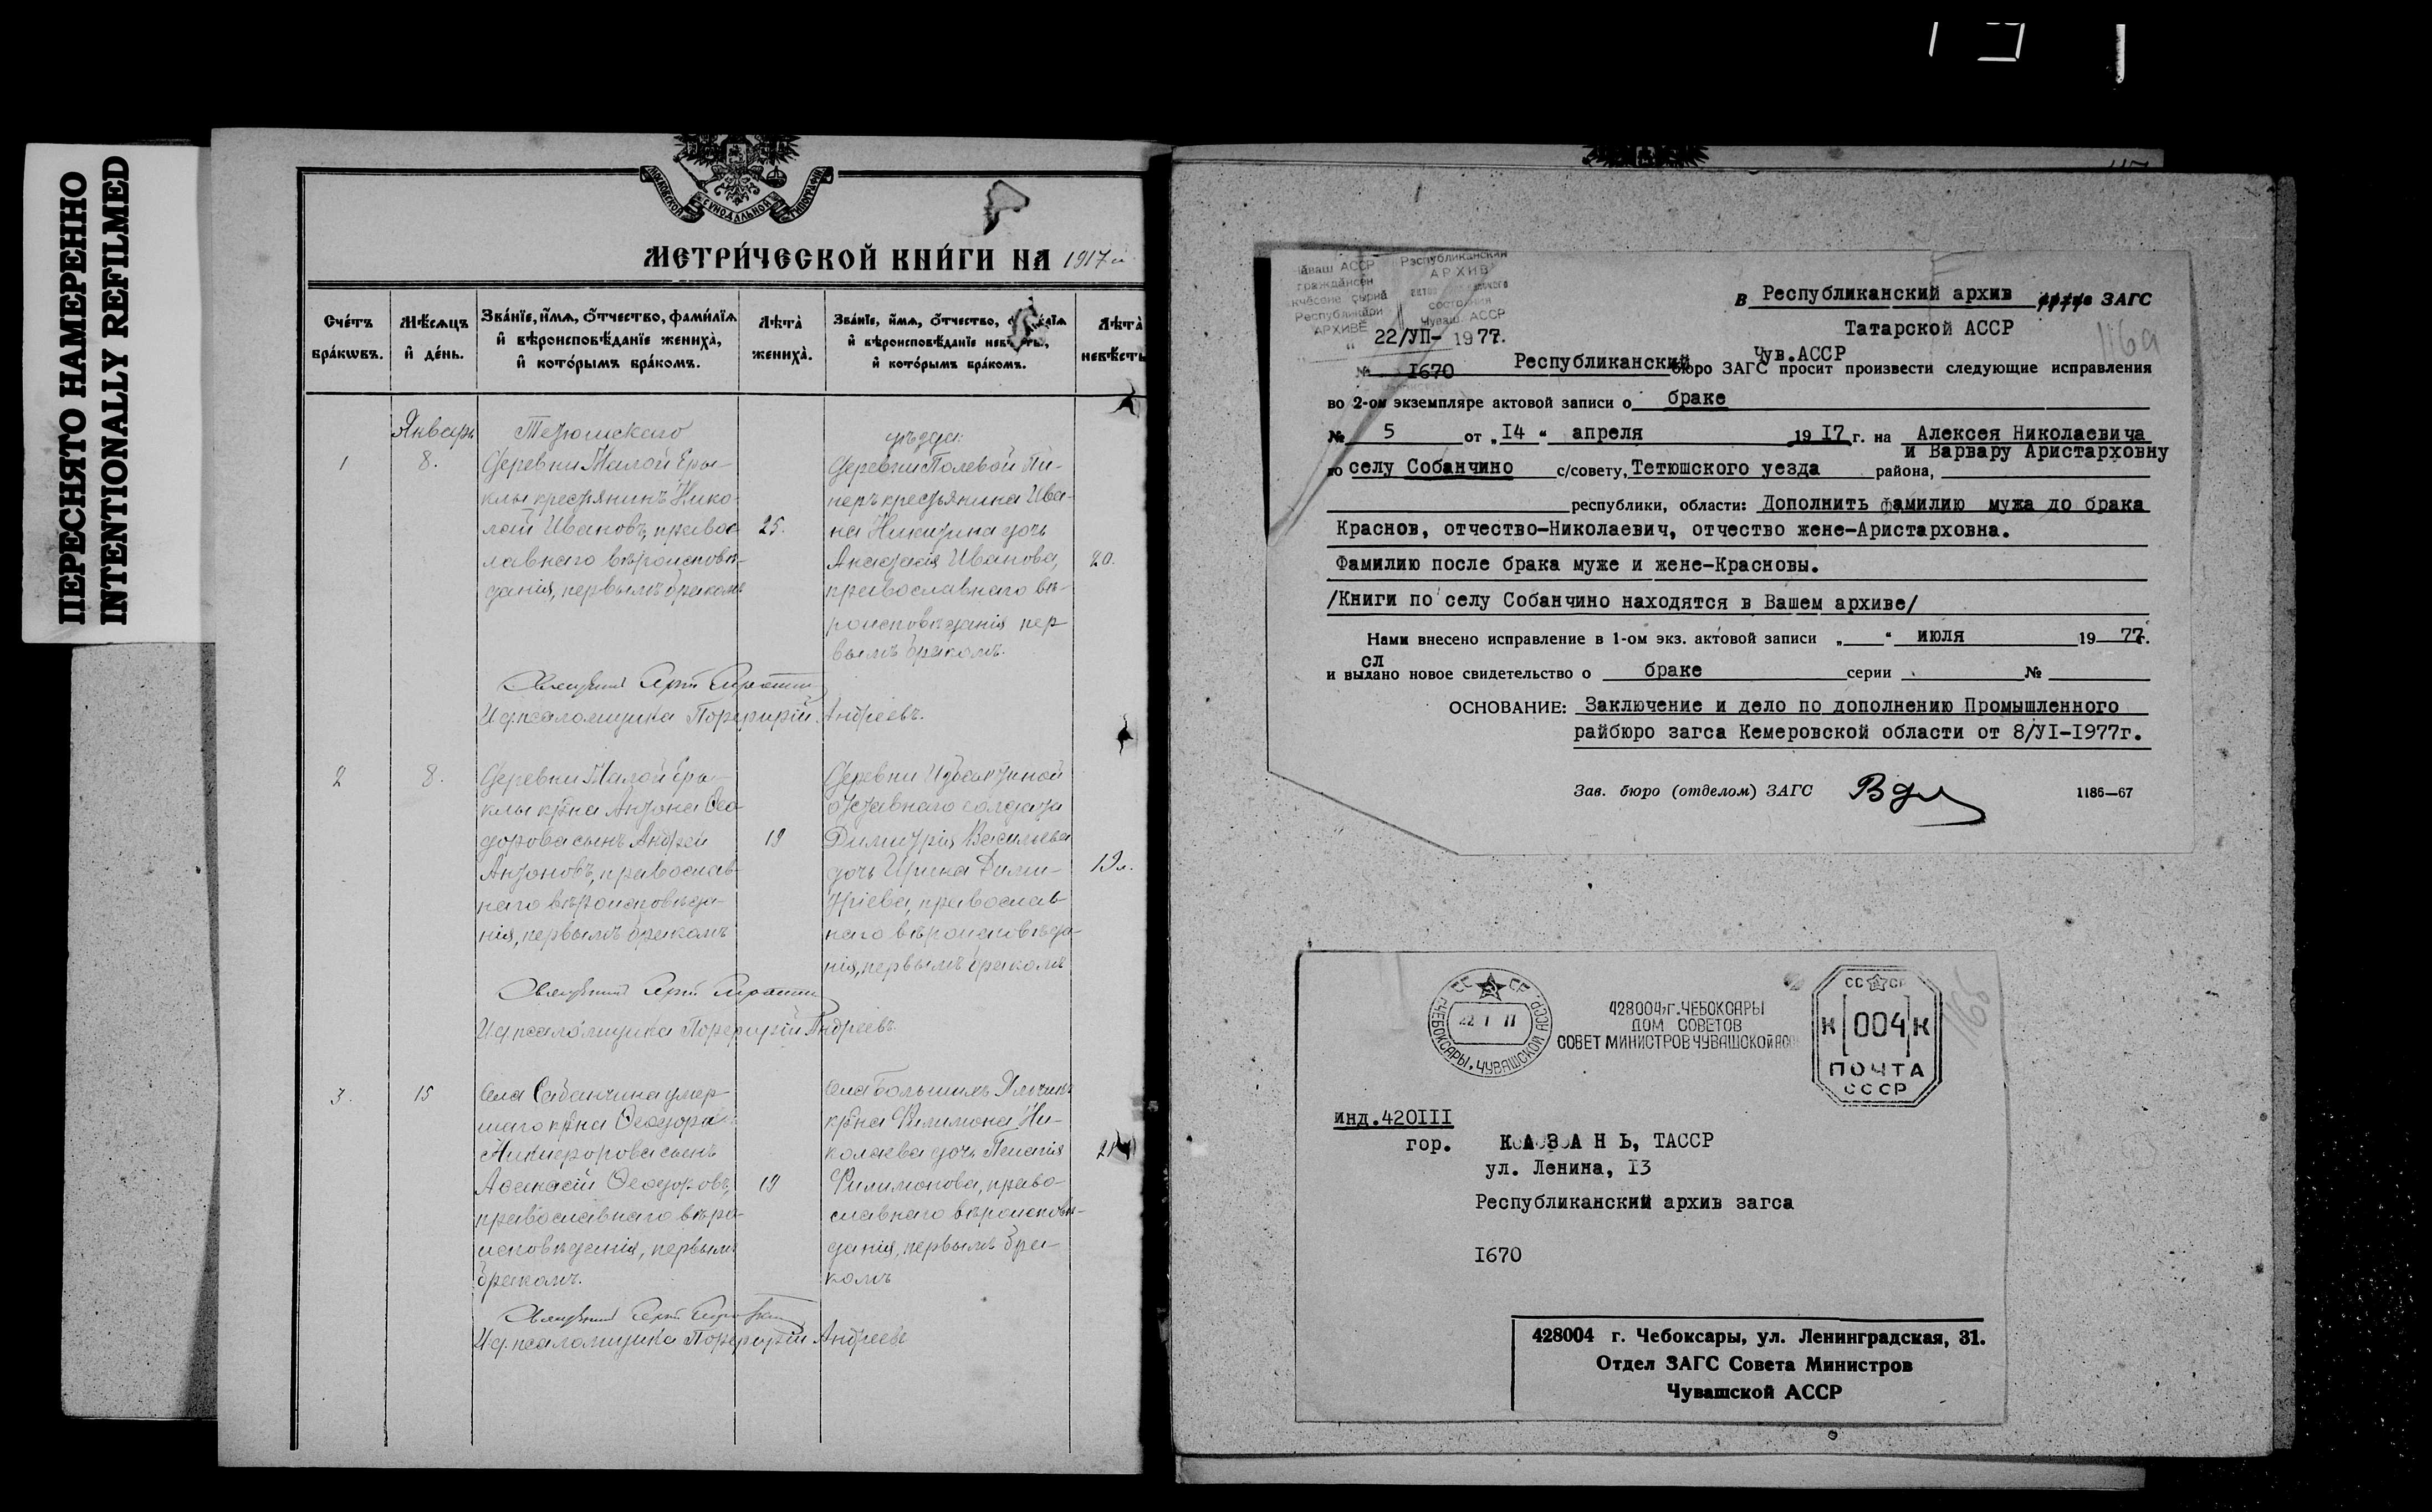 ПЕРЕСНЯТО НАМЕРЕННО
INTENTIONALLY REFILMED
МОСКОВСКОЙ СѴНОДАЛЬНОЙ ТИПОГРАФІИ
МЕТРИ́ЧЕСКОЙ КНИ́ГИ НА 1917 й
Сче́тъ бра́кѡвъ.
Мѣ́сѧцъ и҆ де́нь.
Зва́нїе, и҆́мѧ, ѻ҆́тчество, фами́лїѧ и҆ вѣроисповѣ́данїе жениха̀, и҆ кото́рымъ бра́комъ.
Лѣта̀ жениха̀.
Зва́нїе, и҆́мѧ, ѻ҆́тчество, и҆ вѣроисповѣ́данїе и҆ кото́рымъ бра́комъ.
Лѣта̀ невѣ́сты
Январь
Тетюшскаго
уѣзда:
1
8.
Деревни Малой Еры-
клы крестьянинъ Нико-
лай Ивановъ, правос-
лавнаго вѣроисповѣ-
данія, первымъ бракомъ
25.
Деревни Полевой Пи-
неръ крестьянина Ива-
на Никитина дочь
Анастасія Иванова,
православнаго вѣ-
роисповѣданія пер
вымъ бракомъ.
20.
Священникъ
И.д. псаломщика Порфирій Андреевъ.
2
8.
Деревни Малой Еры-
клы кр-на Антона Ѳео-
дорова сынъ Андрей
Антоновъ, православ-
наго вѣроисповѣда-
нія, первымъ бракомъ
19
Деревни
отставнаго солдата
Димитрія Васильева
дочь Ирина Дими-
тріева, православ-
наго вѣроисповѣда-
нія, первымъ бракомъ
19 л.
Священникъ
И.д. псаломщика Порфирій Андреевъ.
3.
15
Села Сабанчина умер-
шаго кр-на Ѳеодора
Никифорова сынъ
Аѳанасій Ѳеодоровъ,
православнаго вѣро-
исповѣданія, первымъ
бракомъ.
19
Села Большихъ Яльчикъ
кр-на Филимона Ни-
колаева дочь Пелагія
Филимонова, право-
славнаго вѣроисповѣ-
данія, первымъ бра-
комъ
21
Священникъ
И.д. псаломщика Порфирій Андреевъ
Республиканский
АРХИВ
состояния
Чуваш. АССР
чӑваш АССР
Республикӑри
АРХИВӖ
22/УП- 1977.
№ I670
116а
В Республиканский архив ЗАГС
Татарской АССР
Чув.АССР
Республиканский бюро ЗАГС просит произвести следующие исправления
во 2-ом экземпляре актовой записи о браке
№ 5 от „I4“ апреля 19I7 г. на Алексея Николаевича
и Варвару Аристарховну
по селу Собанчино с/совету, Тетюшского уезда района,
республики, области: Дополнить фамилию мужа до брака
Краснов, отчество-Николаевич, отчество жене-Аристарховна.
Фамилию после брака муже и жене-Красновы.
/Книги по селу Собанчино находятся в Вашем архиве/
Нами внесено исправление в 1-ом экз. актовой записи „ “ июля 1977г.
сл
и выдано новое свидетельство о браке серии №
ОСНОВАНИЕ: Заключение и дело по дополнению Промышленного
райбюро загса Кемеровской области от 8/УI-I977г.
Зав. бюро (отделом) ЗАГС
1186—67
СССР
ЧЕБОКСАРЫ, ЧУВАШСКОЙ АССР
428004, г. ЧЕБОКСАРЫ
ДОМ СОВЕТОВ
СОВЕТ МИНИСТРОВ ЧУВАШСКОЙ АССР
СССР
К 004 К
ПОЧТА
СССР
116б
инд.420III
гор. КАЗАНЬ, ТАССР
ул. Ленина, I3
Республиканский архив загса
I670
428004 г. Чебоксары, ул. Ленинградская, 31.
Отдел ЗАГС Совета Министров
Чувашской АССР